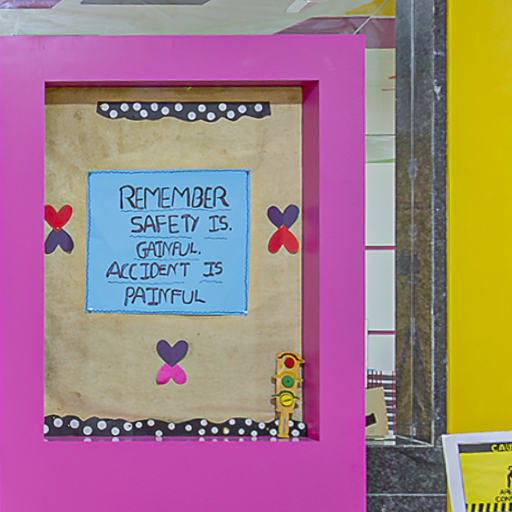 REMEMBER
SAFETY IS.
GAINFUL.
ACCIDENT IS
PAINFUL